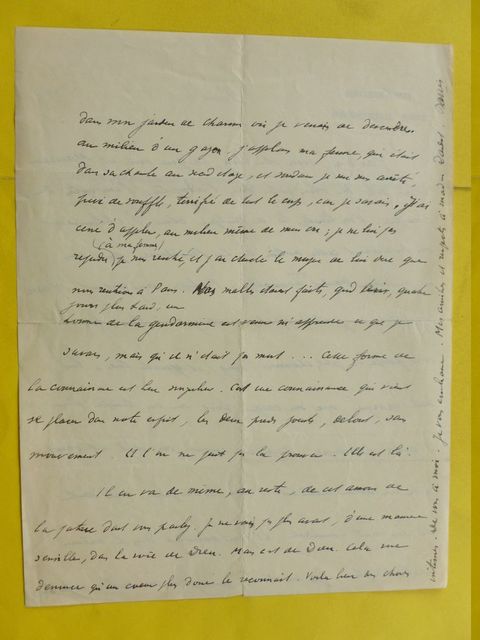 dans mon jardin de Charmes où je venais de descendre.
au milieu d'un gazon. j'appelais ma femme, qui était
dans sa chambre au second étage, et soudain je me suis arrêté,
privé de souffle, terrifié de tout le corps, car je savais. J'ai
cessé d'appeler, au milieu même de mon cri; je ne lui ai pas
(à ma femme)
je suis rentré, et j'ai
nous rentrions à Paris. Nos malles étaient faites, quand
jours plus tard, un
homme de la gendarmerie est venu m'apprendre ce que je
savais, mais qu'il n'était pas mort ... Cette forme de
la connaissance est bien singulière. C'est une connaissance qui vient
se placer dans notre esprit, les deux pieds joints, debout, sans
mouvement. Et l'on ne peut pas la prouver. Elle est là.
Il en va de même, au reste, de cet amour de
la nature dont vous parlez. Je ne vois pas plus avant, d'une manière
sensible, dans la voie de Dieu. Mais est de Dieu. Cela me
démontre qu'un cœur plus donc le reconnait. Voilà bien des choses
intimes. De vous à moi. Je vous embrasse. Mes amitiés et respects à madame